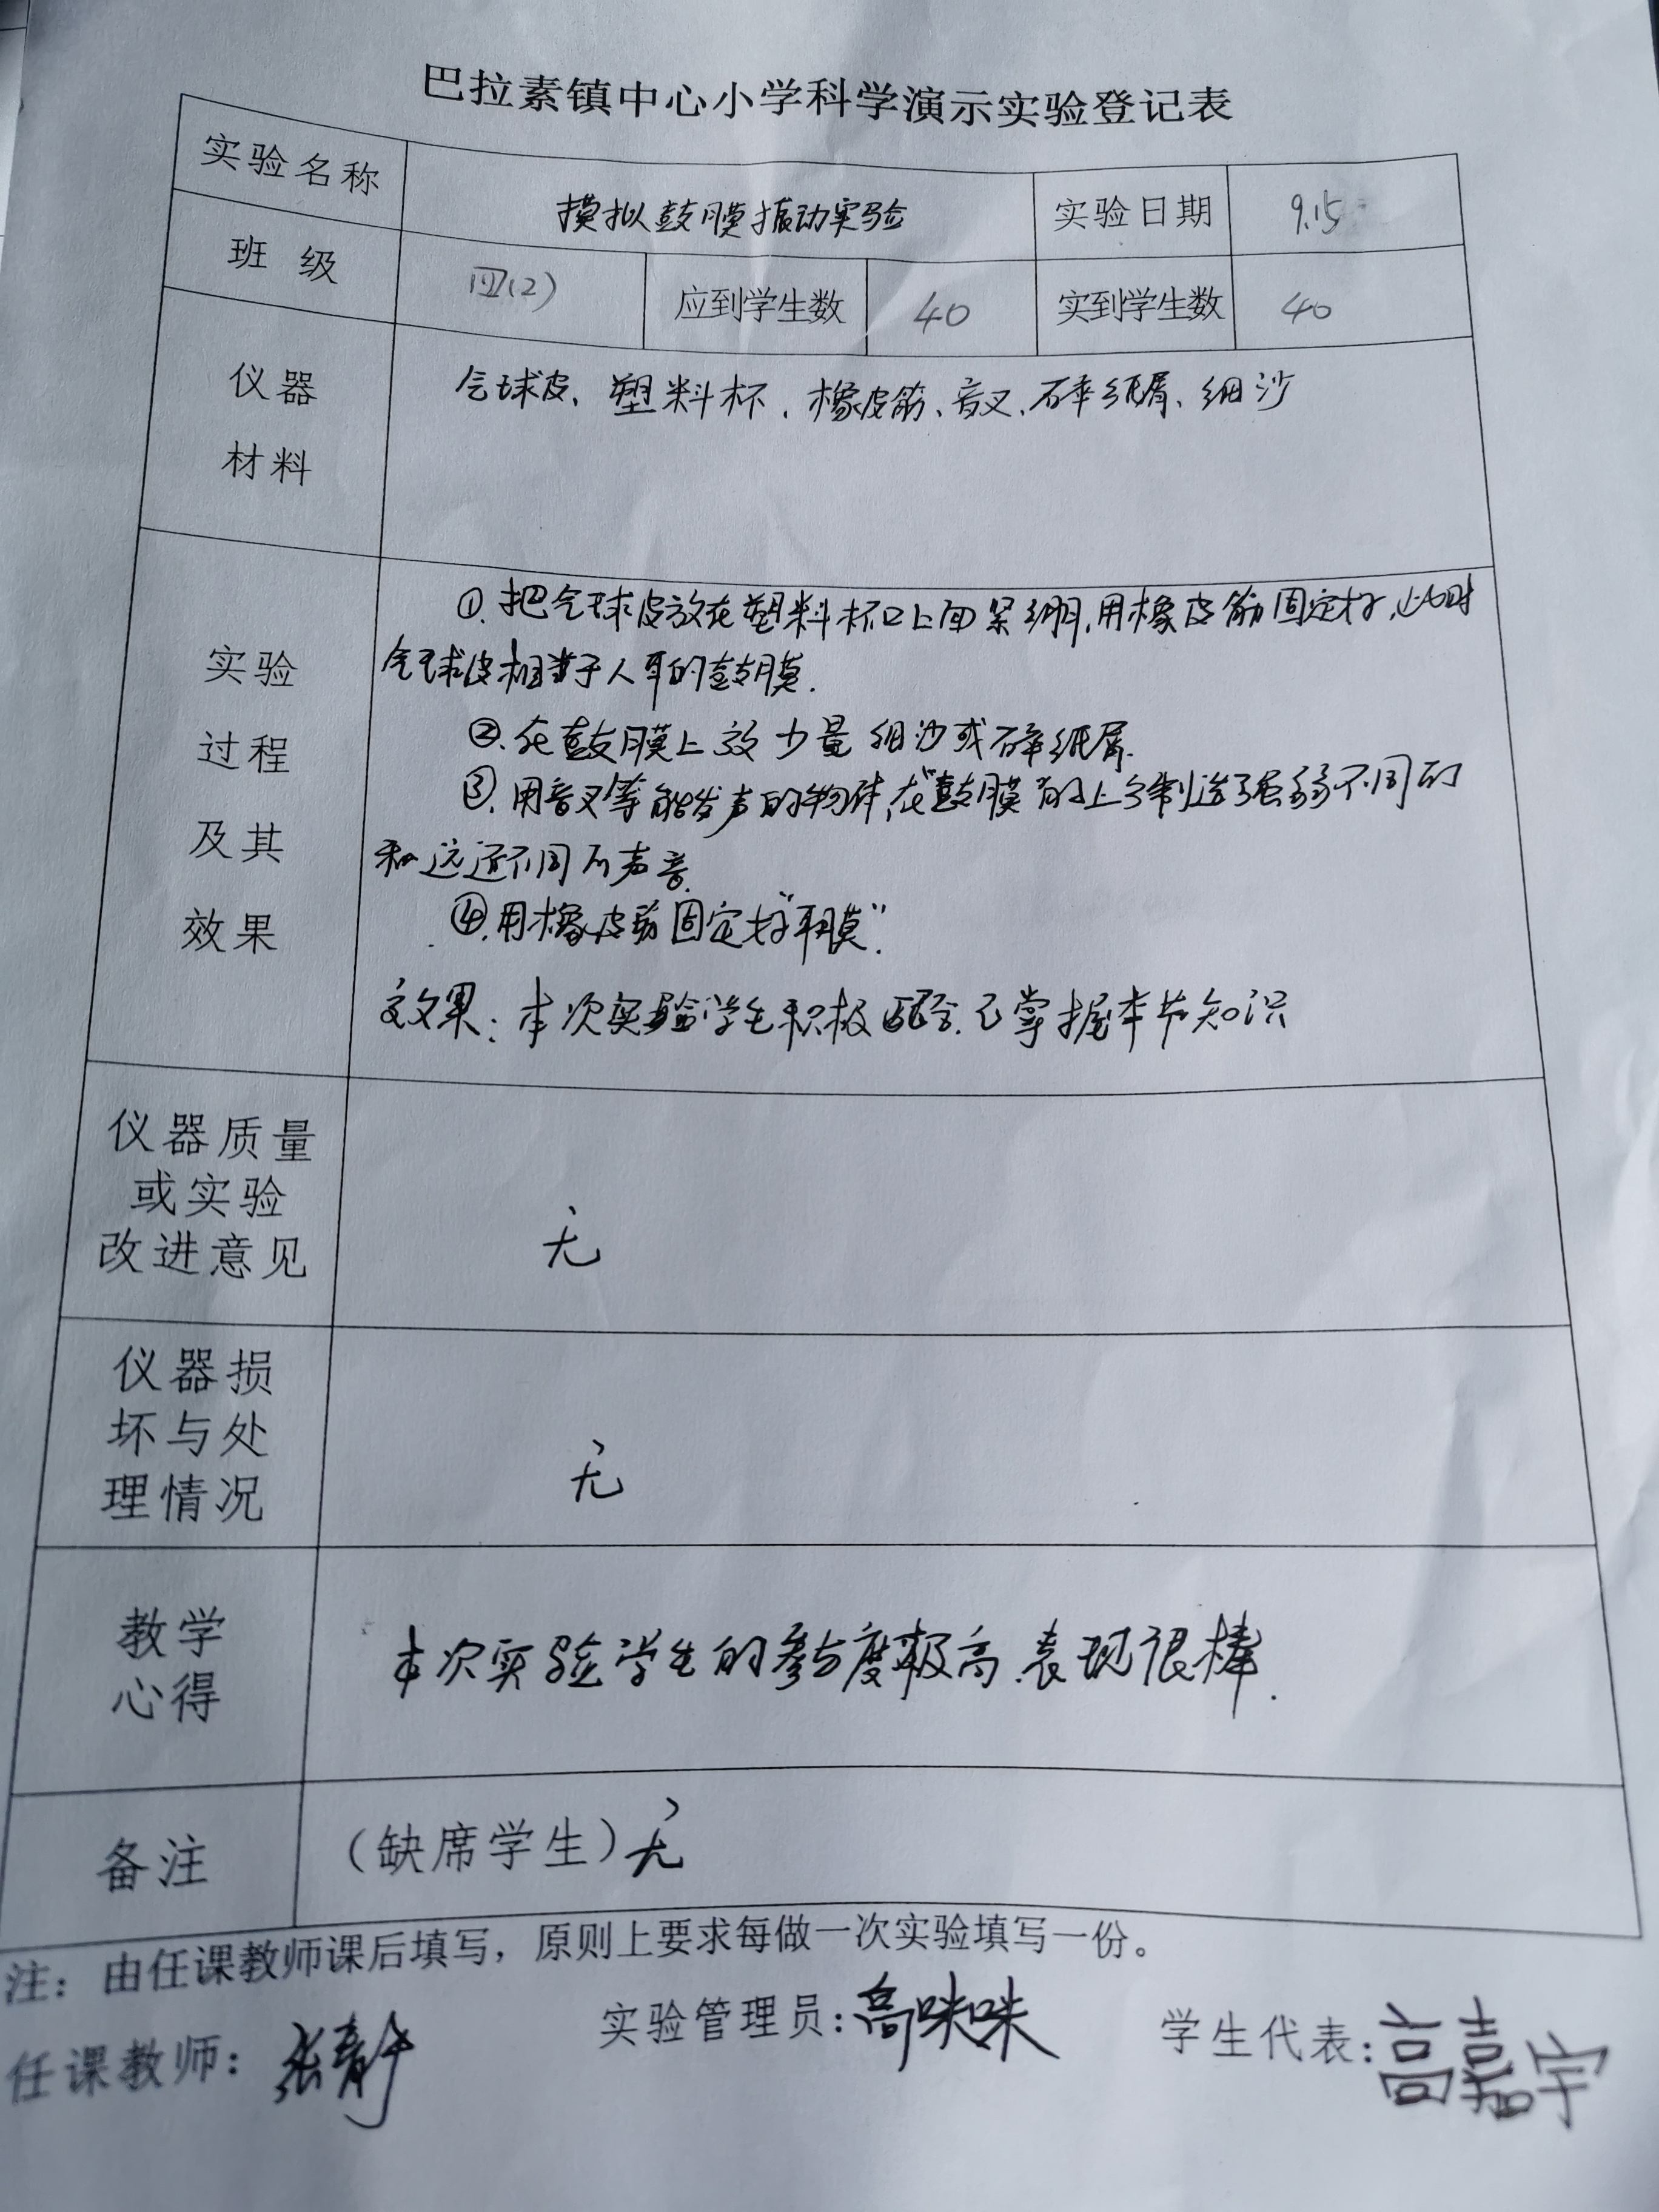 巴拉素镇中心小学科学演示实验登记表
实验名称 摸拟鼓膜振动实验 实验日期 9.15
班级 四(2) 应到学生数 40 实到学生数 40
仪器
材料
气球皮、塑料杯、橡皮筋、音叉、碎纸屑、细沙
实验
过程
及其
效果
①.把气球皮放在塑料杯口上面紧绷,用橡皮筋固定好,此时
气球皮相当于人耳的鼓膜.
②.在鼓膜上放少量细沙或碎纸屑.
③.用音叉等能发声的物体,在“鼓膜”的上方制造强弱不同的
和远近不同的声音.
④.用橡皮筋固定好“耳膜”.
效果:本次实验学生积极配合.已掌握本节知识
仪器质量
或实验
改进意见
无
仪器损
坏与处
理情况
无
教学
心得
本次实验学生的参与度极高.表现很棒.
备注
(缺席学生)无
注:由任课教师课后填写,原则上要求每做一次实验填写一份。
任课教师:张静 实验管理员:高咪咪 学生代表:高嘉宇